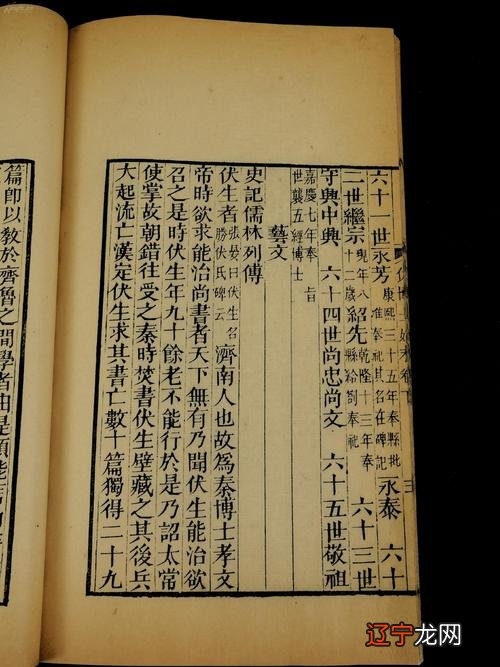 六十一世永芳康熙三十五年奉縣批准奉祀其名在碑記永泰 六十
二世繼宗現年八十二歲紹先乾隆十三年奉縣給劄奉祀 六十三世
守興中興 六十四世尚忠尚文 六十五世敬祖
嘉慶七年奉 旨世襲五經博士
藝文
史記儒林列傳
伏生者張晏曰伏生名勝伏氏碑云濟南人也故爲秦博士孝文
帝時欲求能治尚書者天下無有乃聞伏生能治欲
召之是時伏生年九十餘老不能行於是乃詔太常
使掌故朝錯往受之秦時焚書伏生壁藏之其後兵
大起流亡漢定伏生求其書亡數十篇獨得二十九
篇卽以敎於齊魯之間學者由是頗能
辽宁龙网